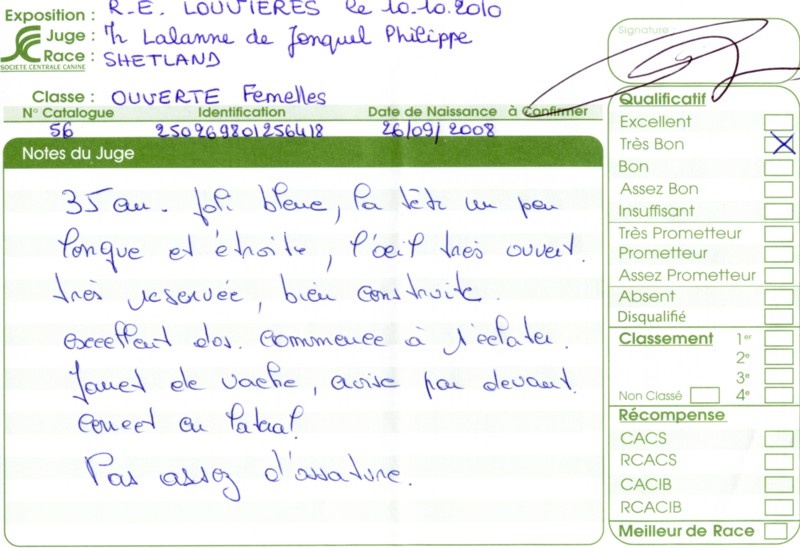 Exposition : R.E. LOUVIERES le 10.10.2010
Juge : Mr Lalanne de Jonquel Philippe
Race : SHETLAND
SOCIETE CENTRALE CANINE
Classe : OUVERTE Femelles
N° Catalogue Identification Date de Naissance à Confirmer
56 250269801256418 26/09/2008
Notes du Juge
35 cm. joli bleue, la tête un peu
longue et étroite, l'oeil très ouvert.
très reservée, bien construite.
excellent dos. commence à s'éclater.
Jarret de vache, croise par devant.
correct en lateral.
Pas assez d'ossature.
Signature
Qualificatif
Excellent
Très Bon X
Bon
Assez Bon
Insuffisant
Très Prometteur
Prometteur
Assez Prometteur
Absent
Disqualifié
Classement 1er
2e
3e
Non Classé 4e
Récompense
CACS
RCACS
CACIB
RCACIB
Meilleur de Race